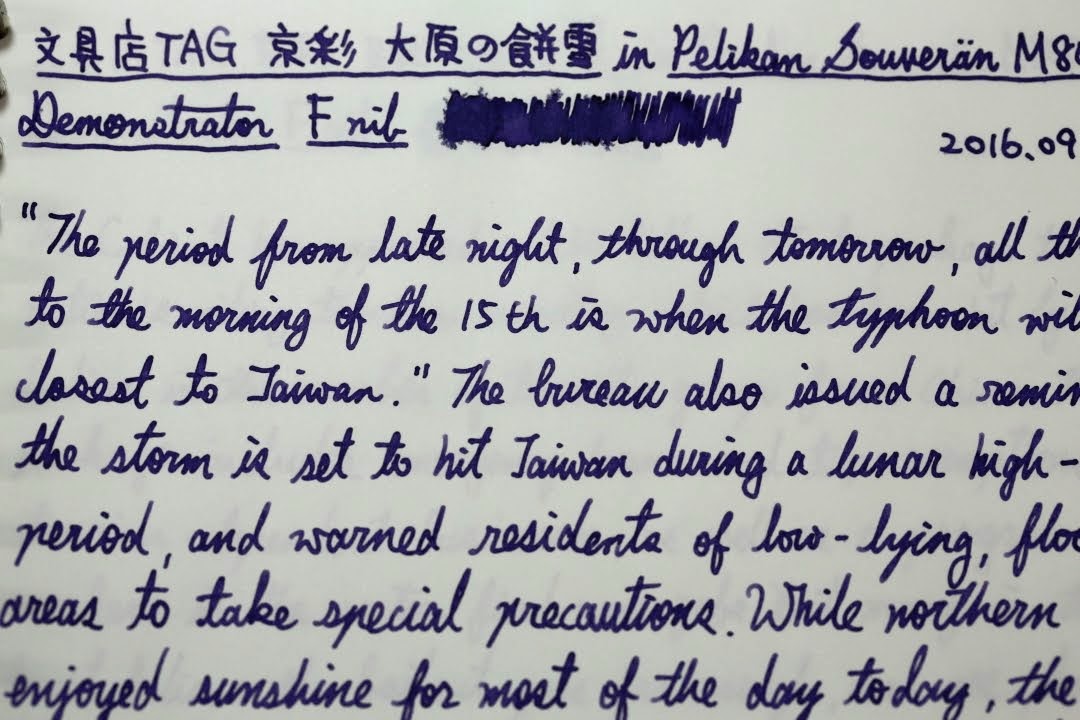 文具店TAG 京彩 大原の餅雪 in Pelikan Souverän M80
Demonstrator F nib
2016.09
"The period from late night, through tomorrow, all th
to the morning of the 15th is when the typhoon wil
closest to Taiwan." The bureau also issued a remin
the storm is set to hit Taiwan during a lunar high-
period, and warned residents of low-lying, floo
areas to take special precautions. While northern
enjoyed sunshine for most of the day today, the